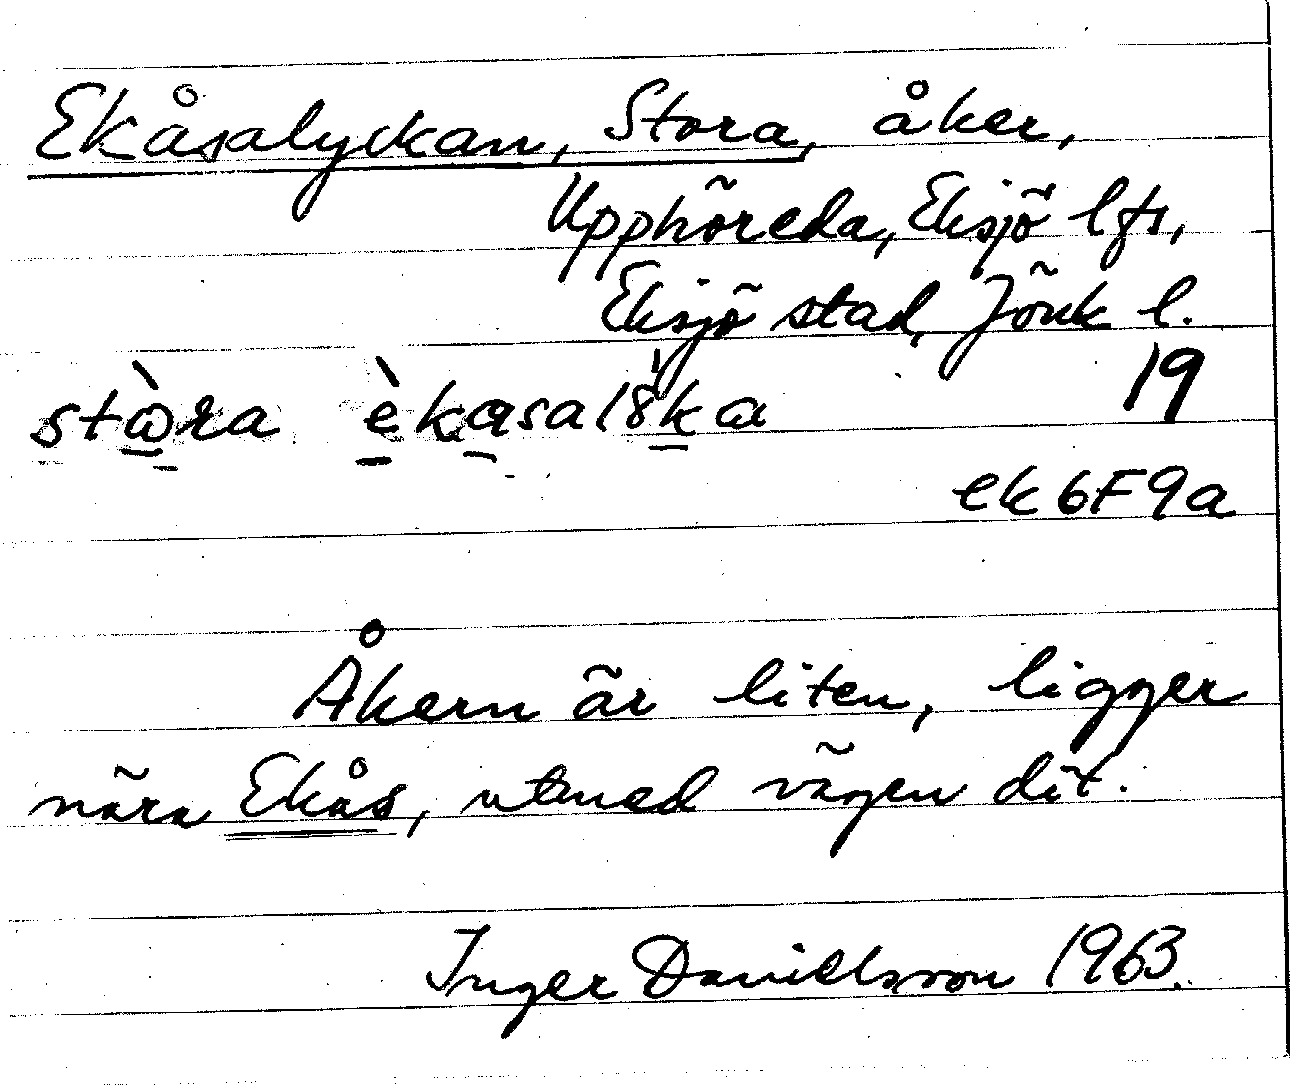 Ekåsalyckan, Stora, åker,
Upphöreda, Eksjö lfs,
Eksjö stad, Jönk l.
stὼra èkasalỳka
19
ek 6F9a
Åkern är liten, ligger
nära Ekås, utmed vägen dit.
Inger Danielsson 1963.